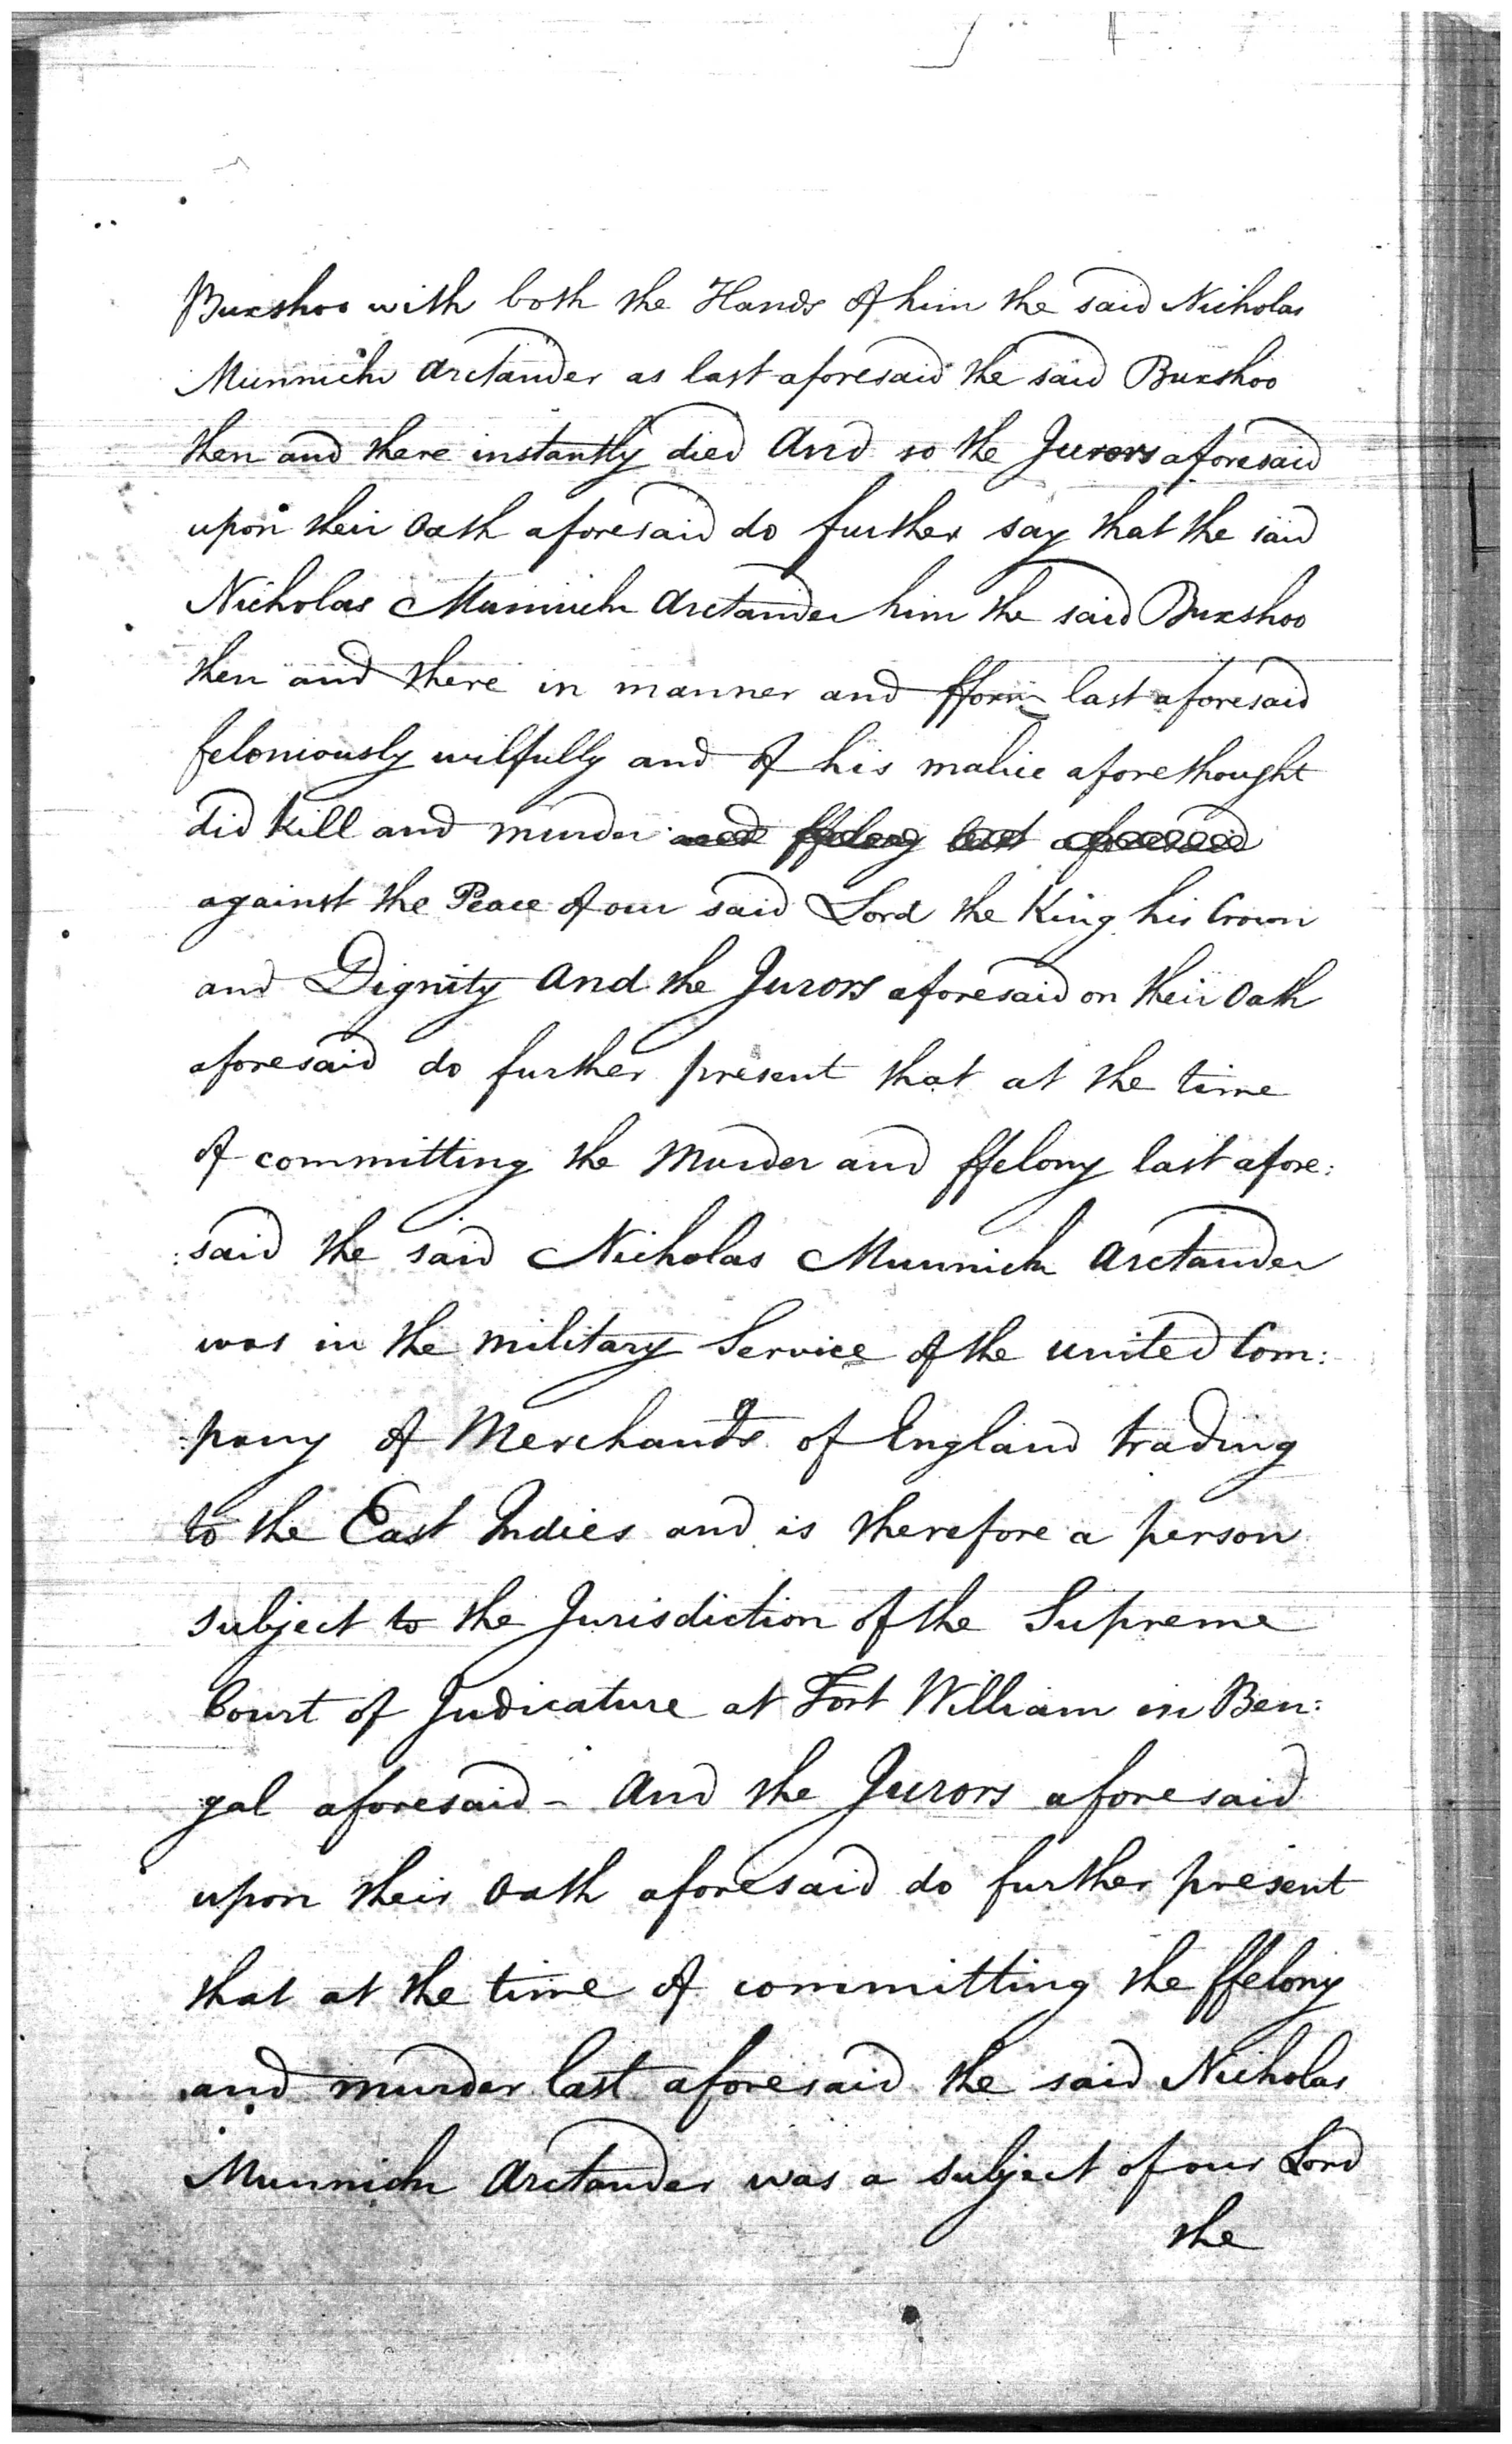 Buxshoo with both the Hands of him the said Nicholas
Munnich Arctander as last aforesaid the said Buxshoo
then and there instantly died And so the Jurors aforesaid
upon their Oath aforesaid do further say that the said
Nicholas Munnich Arctander him the said Buxshoo
then and there in manner and fform last aforesaid
feloniously wilfully and of his malice aforethought
did kill and murder and ffelony last aforesaid
against the Peace of our said Lord the King his Crown
and Dignity And the Jurors aforesaid on their Oath
aforesaid do further present that at the time
of committing the Murder and ffelony last afore:
:said the said Nicholas Munnich Arctander
was in the military Service of the united Com:
:pany of Merchants of England trading
to the East Indies and is therefore a person
subject to the Jurisdiction of the Supreme
Court of Judicature at Fort William in Ben:
gal aforesaid - And the Jurors aforesaid
upon their Oath aforesaid do further present
that at the time of committing the ffelony
and murder last aforesaid the said Nicholas
Munnich Arctander was a subject of our Lord
the